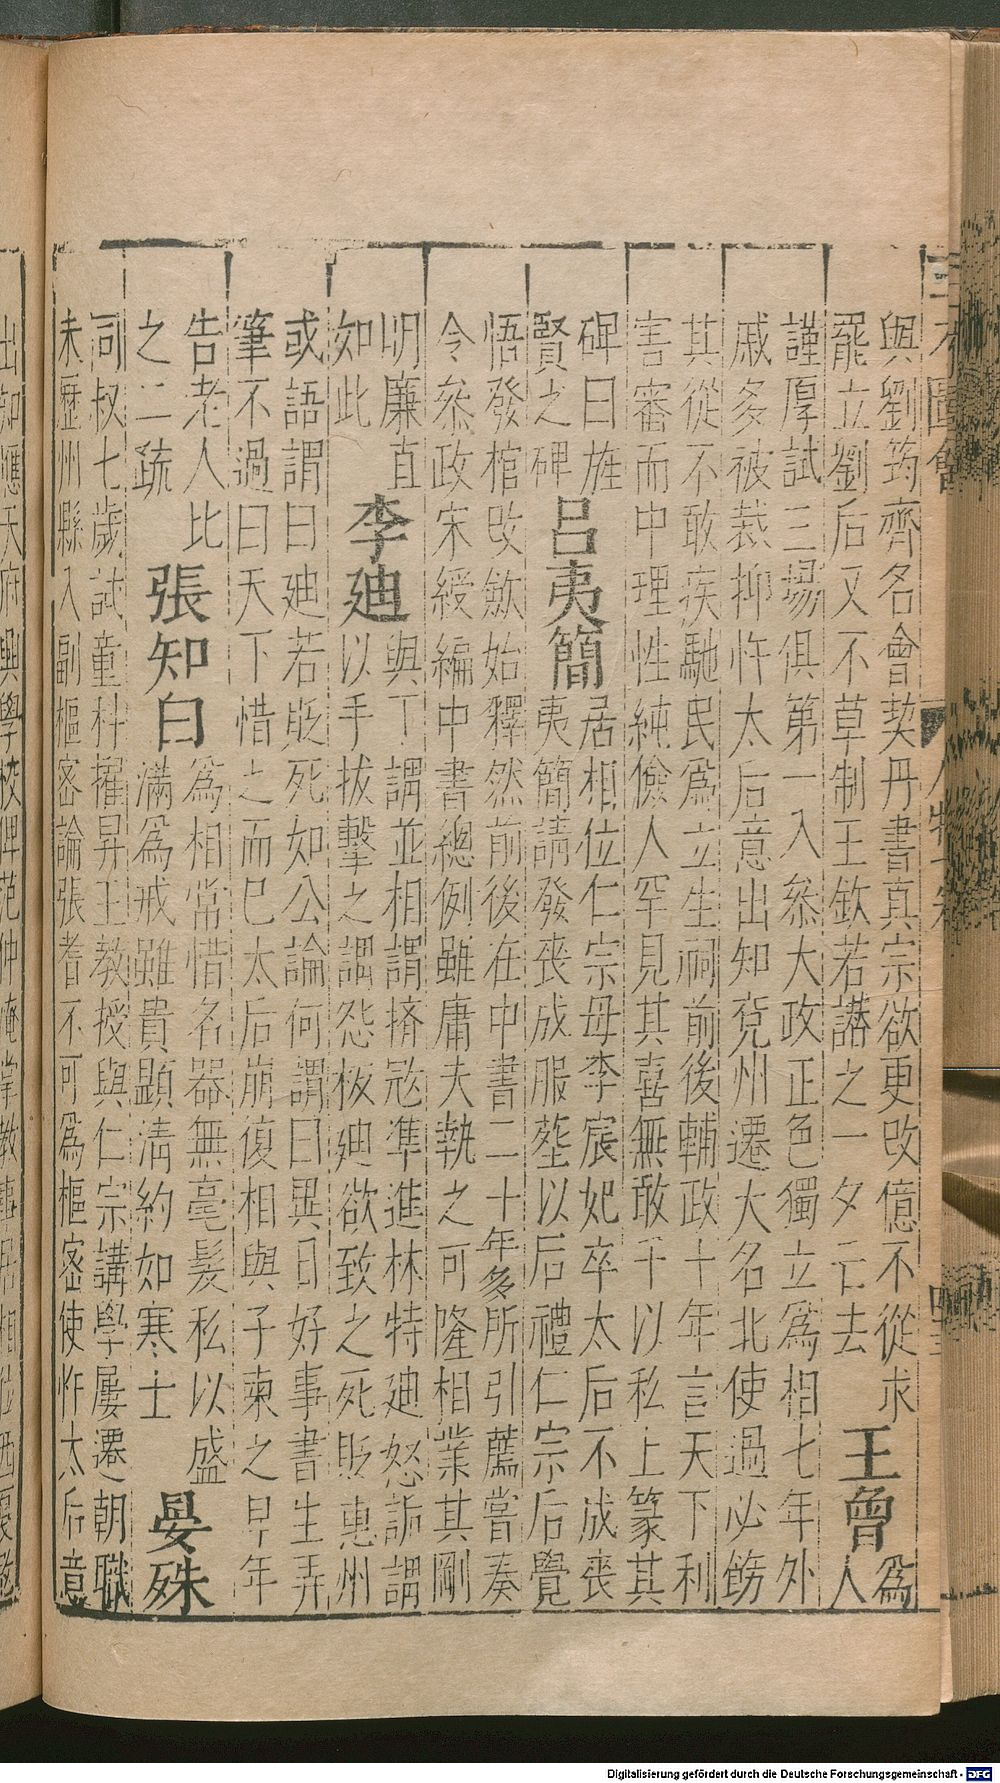 三才圖會
人物
與劉筠齊名會契丹書真宗欲更改億不從求
罷立劉后又不草制王欽若譖之一夕亡去
王曾
為
人
謹厚試三場俱第一入叅大政正色獨立為相七年外
戚多被裁抑忤太后意出知兗州遷大名北使過必飭
其從不敢疾馳民為立生祠前後輔政十年言天下利
害審而中理性純儉人罕見其喜無敢干以私上篆其
碑曰旌
賢之碑
呂夷簡
居相位仁宗母李宸妃卒太后不成喪
夷簡請發喪成服塟以后禮仁宗后覺
悟發棺改斂始釋然前後在中書二十年多所引薦嘗奏
令叅政宋綬編中書總例雖庸夫執之可隆相業其剛
明廉直
如此
李廸
與丁謂並相謂擠冦準進林特廸怒詬謂
以手拔擊之謂怨板廸欲致之死貶惠州
或語謂曰廸若貶死如公論何謂曰異日好事書生弄
筆不過曰天下惜之而巳太后崩復相與子柬之早年
告老人比
之二疏
張知白
為相常惜名器無毫髮私以盛
滿為戒雖貴顯清約如寒士
晏殊
司叔七歲試童科擢昇王教授與仁宗講學屢遷朝職
未歷州縣入副樞密論張耆不可為樞密使忤太后意
出知應天府興學校俾范仲淹掌教